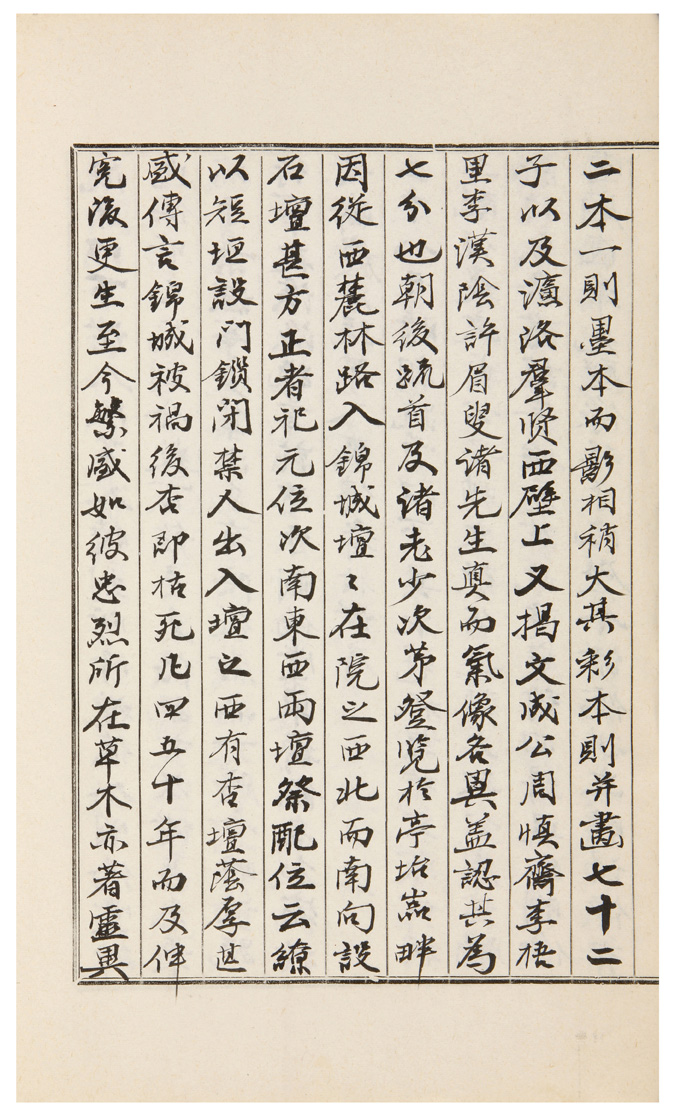 二本一則墨本而影相稍大其彩本則并畵七十二
子以及濂洛羣賢西壁上又揭文成公周愼齋李梧
里李漢陰許眉叟諸先生眞而氣像各異盖認其爲
七分也朝後疏首及諸老少次苐登覽於亭坮嵓畔
因從西麓林路入錦城壇〻在院之西北而南向設
石壇甚方正者祀元位次南東西兩壇祭配位云繚
以短垣設門鎖閉禁人出入壇之西有杏壇蔭厚甚
盛傳言錦城被禍後杏卽枯死凡四五十年而及伸
寃後更生至今繁盛如彼忠烈所在草木亦著靈異